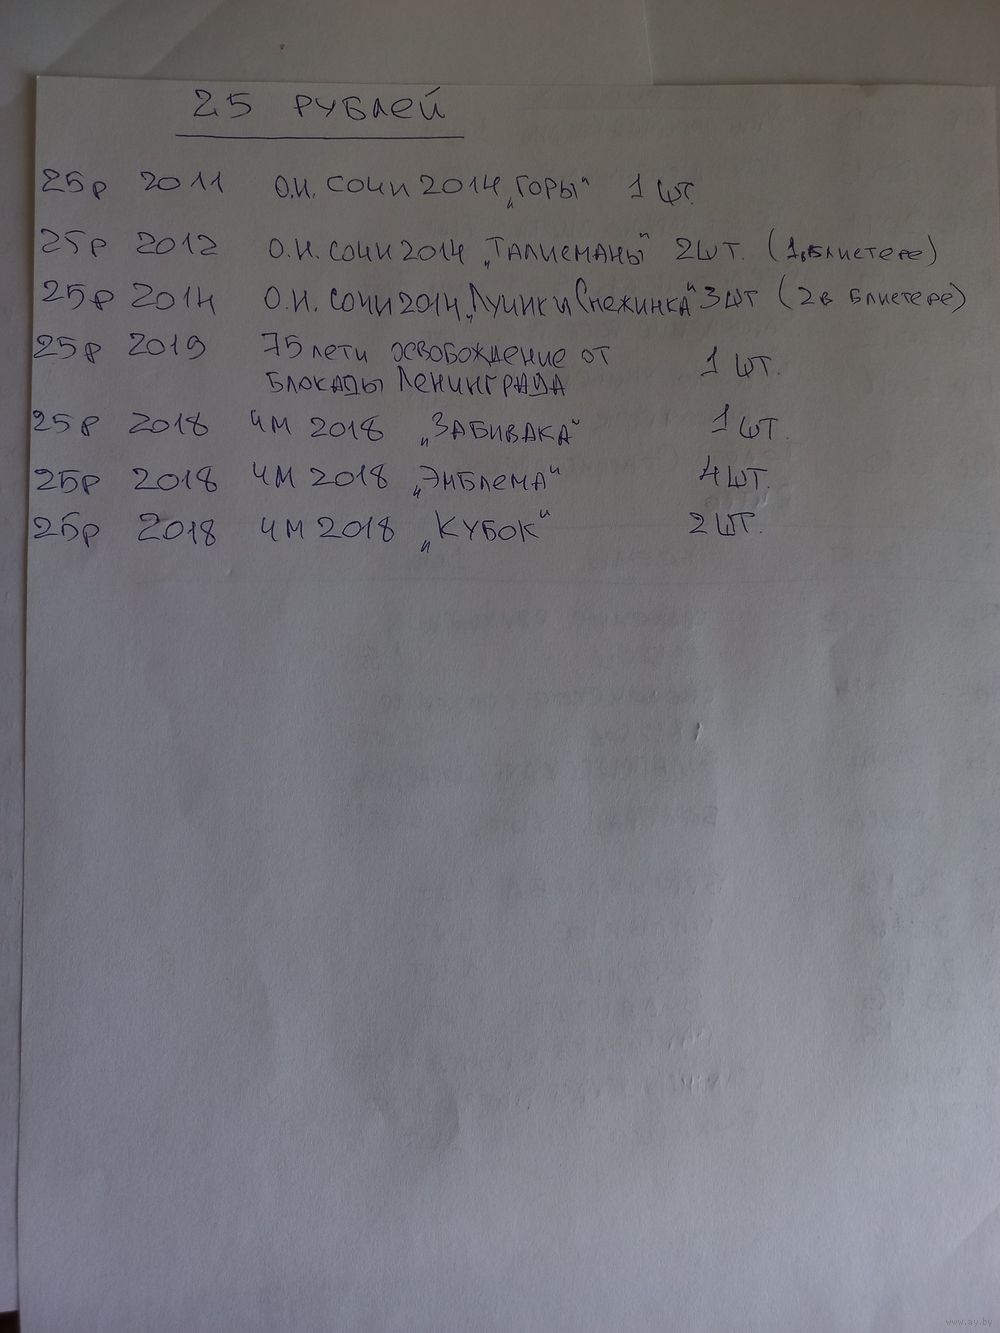 25 РУБЛЕЙ
25р 2011 О.И. СОЧИ 2014 „ГОРЫ“ 1 шт.
25р 2012 О.И. СОЧИ 2014 „ТАЛИСМАНЫ“ 2 шт. (1 в блистере)
25р 2014 О.И. СОЧИ 2014 „Лучик и Снежинка“ 3 шт (2 в блистере)
25р 2019 75 лети освобождение от
БЛОКАДЫ ЛЕНИНГРАДА 1 шт.
25р 2018 ЧМ 2018 „ЗАБИВАКА“ 1 шт.
25р 2018 ЧМ 2018 „ЭМБЛЕМА“ 4 шт.
25р 2018 ЧМ 2018 „КУБОК“ 2 шт.
www.ay.by